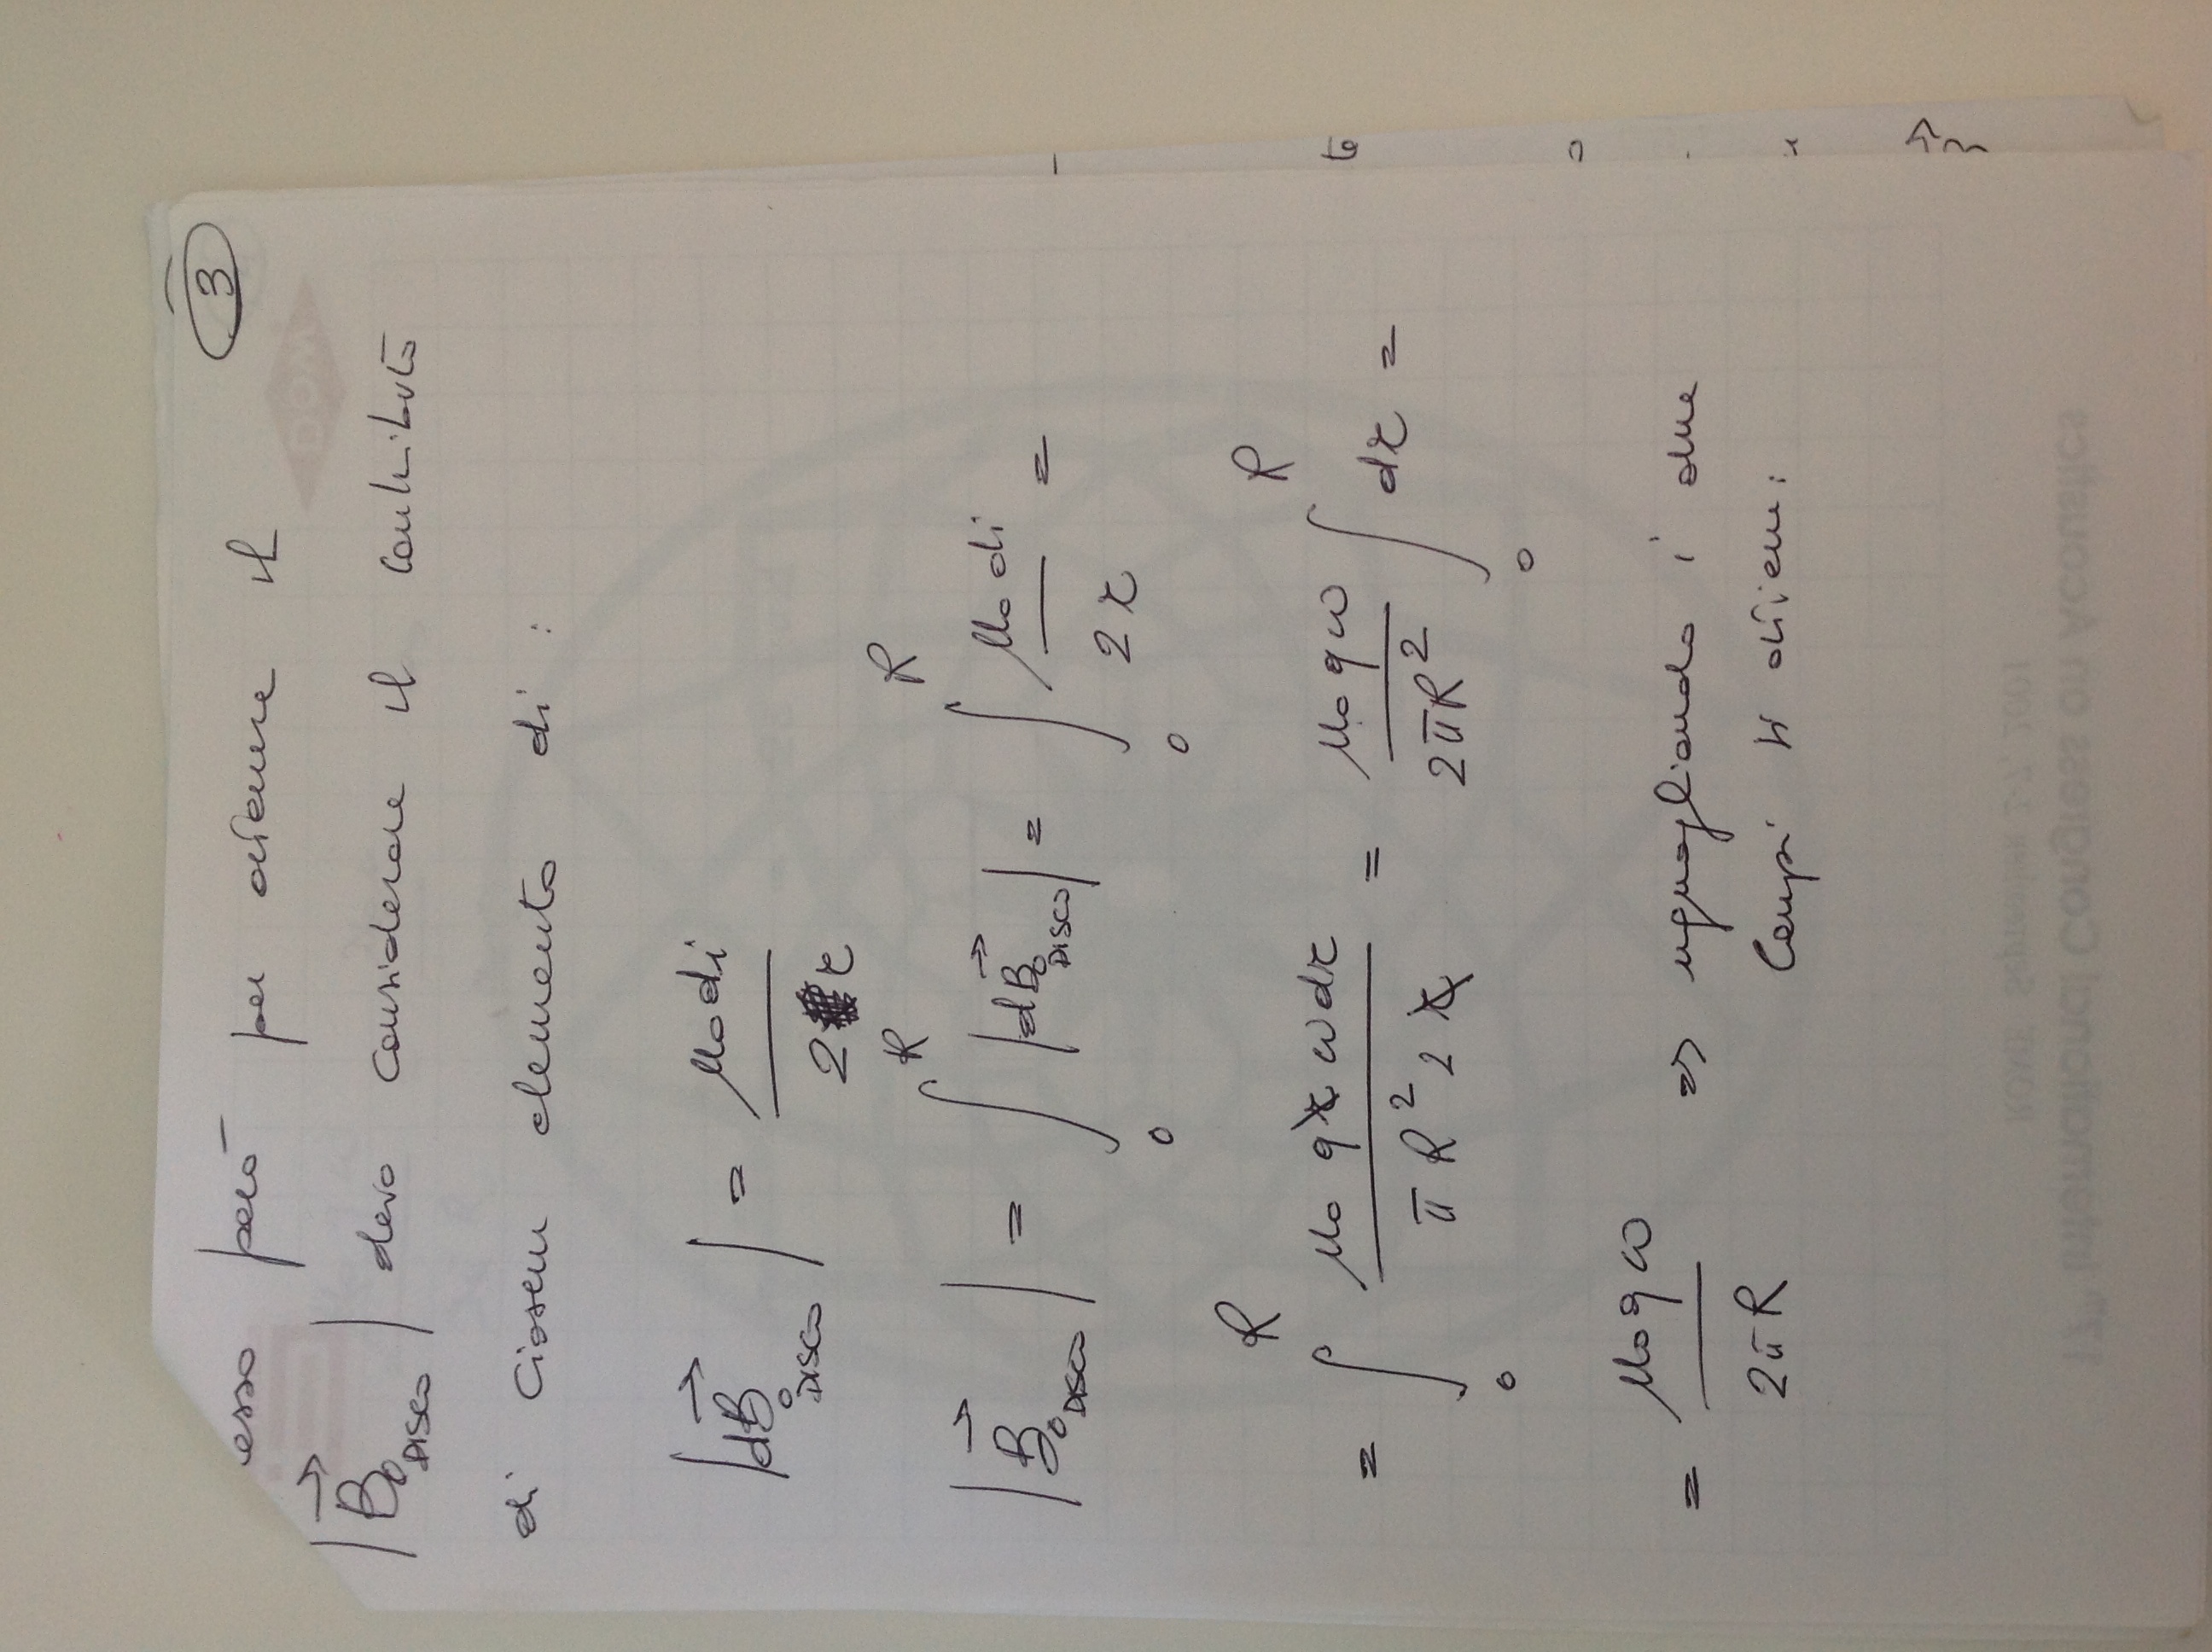 3
esso però per ottenere il
|B⃗₀ DISCO| devo considerare il contributo
di ciascun elemento di :
|dB⃗₀ DISCO| = μ₀ di / 2 r
|B⃗₀ DISCO| = ∫₀ᴿ |dB⃗₀ DISCO| = ∫₀ᴿ μ₀ di / 2 r =
= ∫₀ᴿ μ₀ q r ω dr / π R² 2 r = μ₀ q ω / 2 π R² ∫₀ᴿ dr =
= μ₀ q ω / 2 π R ⇒ uguagliando i due
campi si ottiene:
DOW
ROME September 2-7, 2001
17th International Congress on Acoustics